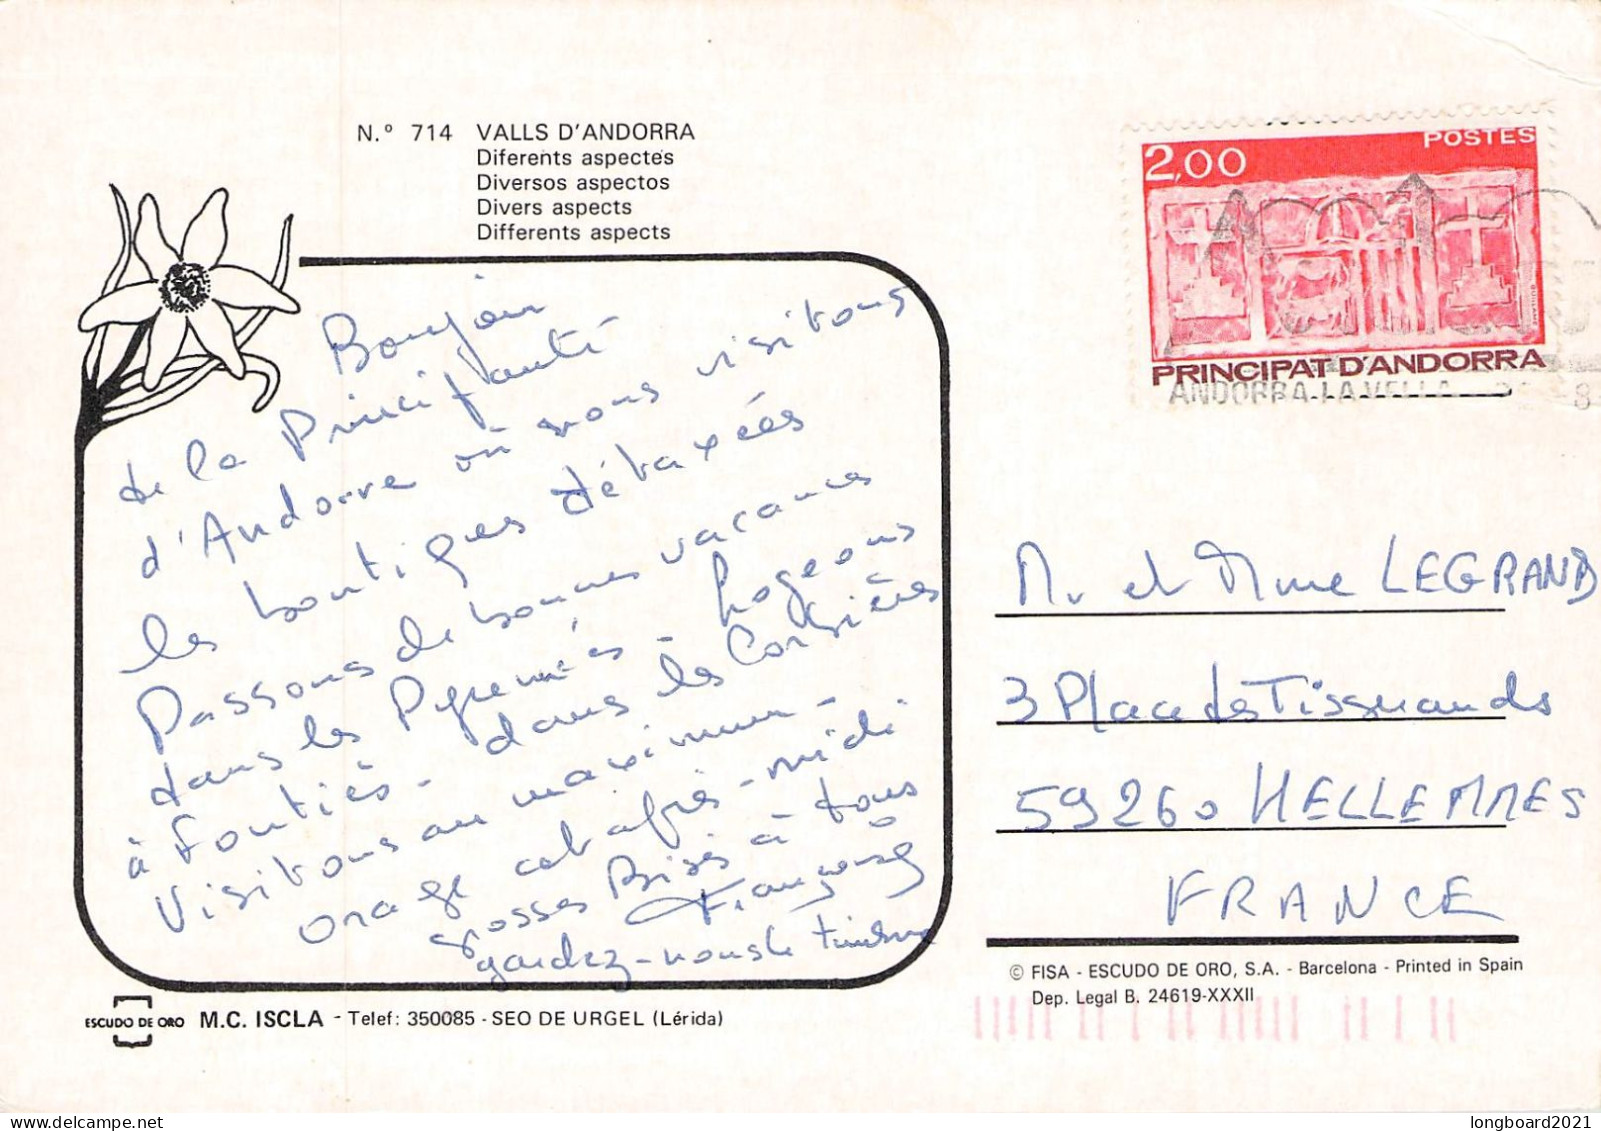 N.º 714 VALLS D'ANDORRA
Diferents aspectes
Diversos aspectos
Divers aspects
Differents aspects
POSTES
2,00
PRINCIPAT D'ANDORRA
ANDORRA-LA-VELLA
Bonjour
de la Principauté
d'Andorre où nous visitons
les boutiques détaxées
Passons de bonnes vacances
dans les Pyrenées - Logeons
à Fontiès - dans les Corbières
Visitons au maximum -
orage cet après-midi
grosses Bises à tous
Françoise
gardez-nous le timbre
M. et Mme LEGRAND
3 Place des Tisserands
59260 HELLEMMES
FRANCE
© FISA - ESCUDO DE ORO, S.A. - Barcelona - Printed in Spain
Dep. Legal B. 24619-XXXII
ESCUDO DE ORO M.C. ISCLA - Telef: 350085 - SEO DE URGEL (Lérida)
longboard2021